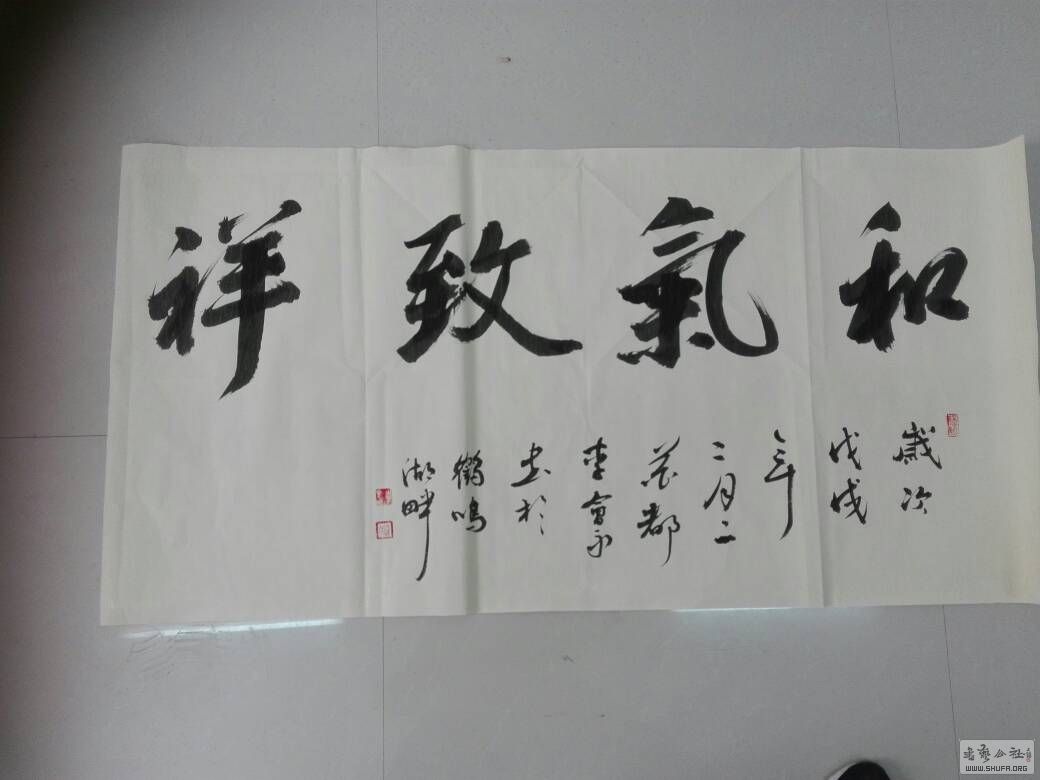 和氣致祥
歲次
戊戌
年
二月二
花都
李會永
书於
鶴鳴
湖畔
书艺公社
WWW.SHUFA.ORG